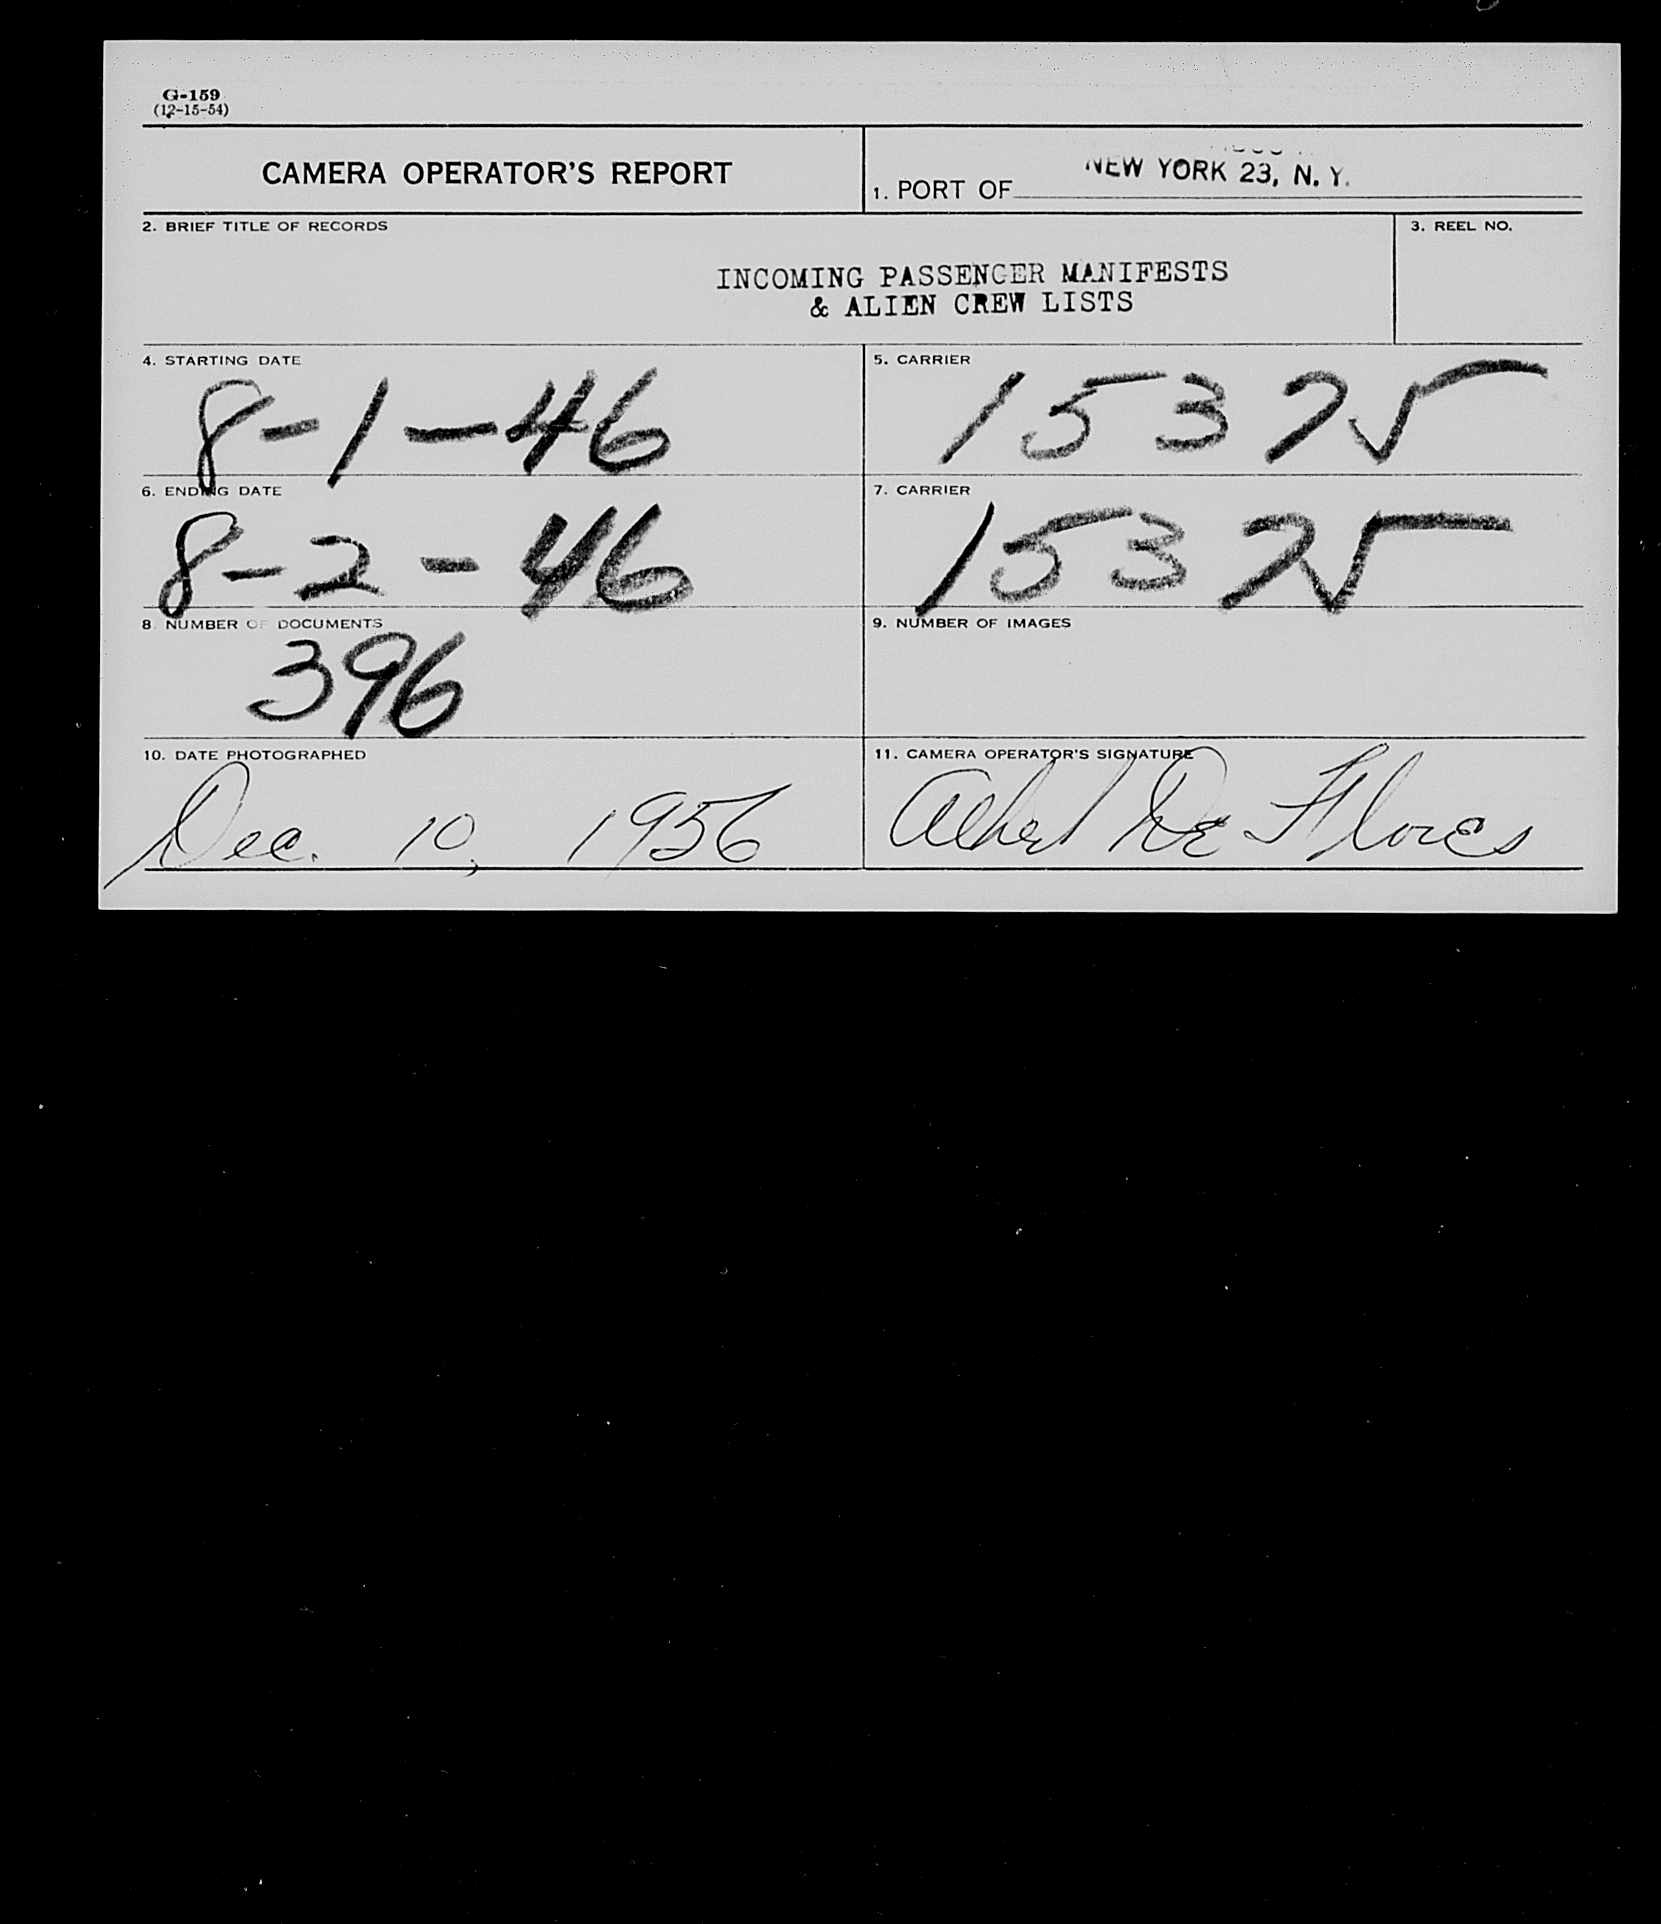 G-159
(12-15-54)
CAMERA OPERATOR'S REPORT
1. PORT OF NEW YORK 23, N. Y.
2. BRIEF TITLE OF RECORDS
3. REEL NO.
INCOMING PASSENGER MANIFESTS
& ALIEN CREW LISTS
4. STARTING DATE
8-1-46
5. CARRIER
15325
6. ENDING DATE
8-2-46
7. CARRIER
15325
8. NUMBER OF DOCUMENTS
396
9. NUMBER OF IMAGES
10. DATE PHOTOGRAPHED
Dec. 10, 1956
11. CAMERA OPERATOR'S SIGNATURE
Albert De Flores